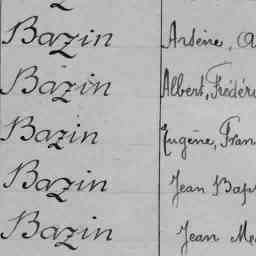 Bazin Arsène, A
Bazin Albert, Frédéri
Bazin Eugène, Fran
Bazin Jean Bap
Bazin Jean Me